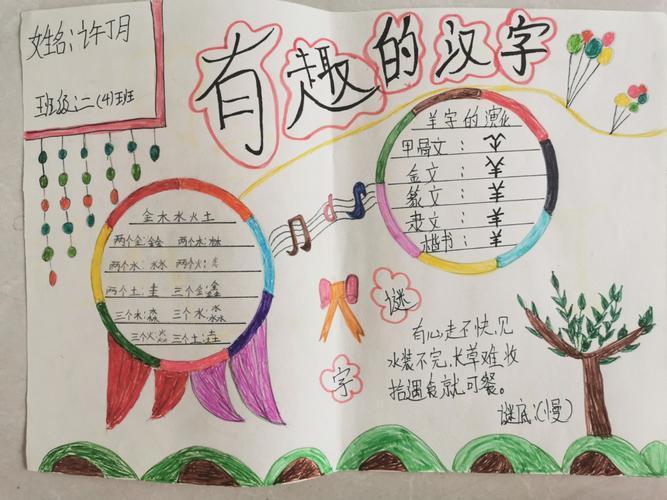 姓名:许丁月
班级:二(4)班
有趣的汉字
金木水火土
两个金:鍂 两个木:林
两个水:沝 两个火:炎
两个土:圭 三个金:鑫
三个木:森 三个水:淼
三个火:焱 三个土:垚
羊字的演化
甲骨文:
金文:
篆文:
隶文:羊
楷书:羊
谜
字
有心走不快,见
水装不完,长草难收
拾,遇食就可餐。
谜底:(慢)